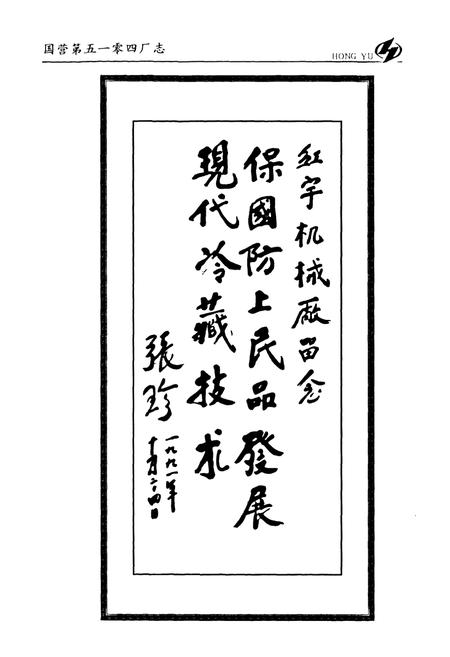 国营第五一零四厂志
HONG YU
红宇机械厰留念
保國防上民品發展
現代冷藏技术
張珍
一九九一年
十月二十四日